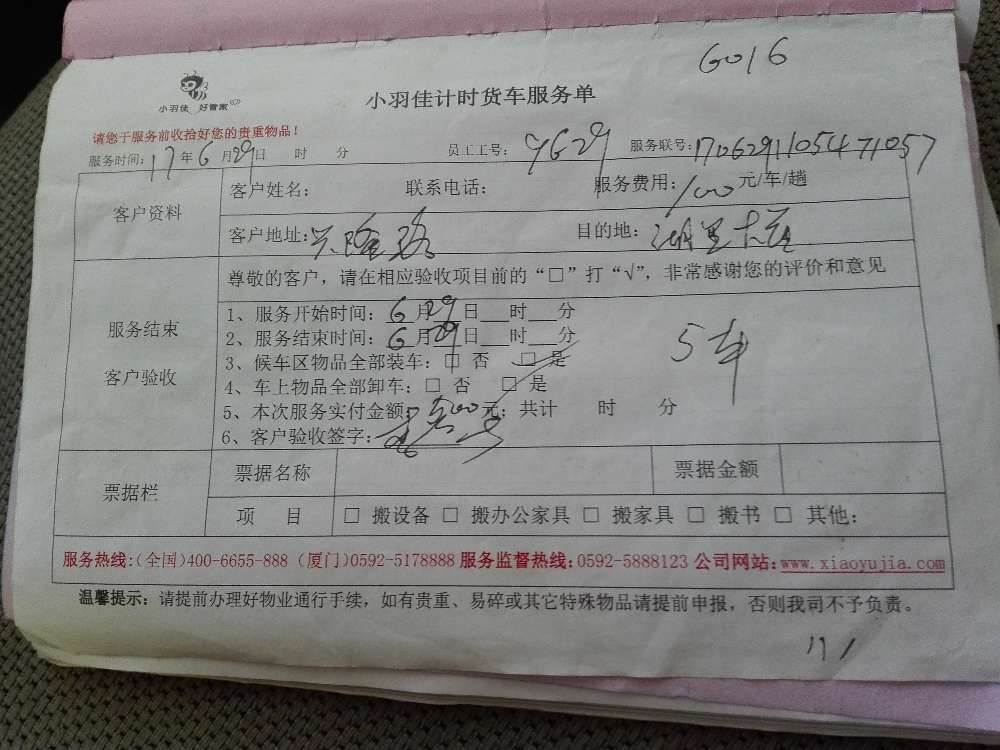 G016
小羽佳 好管家
小羽佳计时货车服务单
请您于服务前收拾好您的贵重物品！
服务时间：17年6月29日 时 分 员工工号： 服务联号：1706291105471057
客户资料
客户姓名： 联系电话： 服务费用：100元/车/趟
客户地址：兴隆路 目的地：湖里大道
尊敬的客户，请在相应验收项目前的“□”打“√”，非常感谢您的评价和意见
服务结束
客户验收
1、服务开始时间：6月29日___时___分
2、服务结束时间：6月29日___时___分
3、候车区物品全部装车：□ 否 □ 是
4、车上物品全部卸车：□ 否 □ 是
5、本次服务实付金额：元；共计 时 分
6、客户验收签字：
5车
票据栏
票据名称 票据金额
项 目 □ 搬设备 □ 搬办公家具 □ 搬家具 □ 搬书 □ 其他：
服务热线：（全国）400-6655-888（厦门）0592-5178888 服务监督热线：0592-5888123 公司网站：www.xiaoyujia.com
温馨提示：请提前办理好物业通行手续，如有贵重、易碎或其它特殊物品请提前申报，否则我司不予负责。